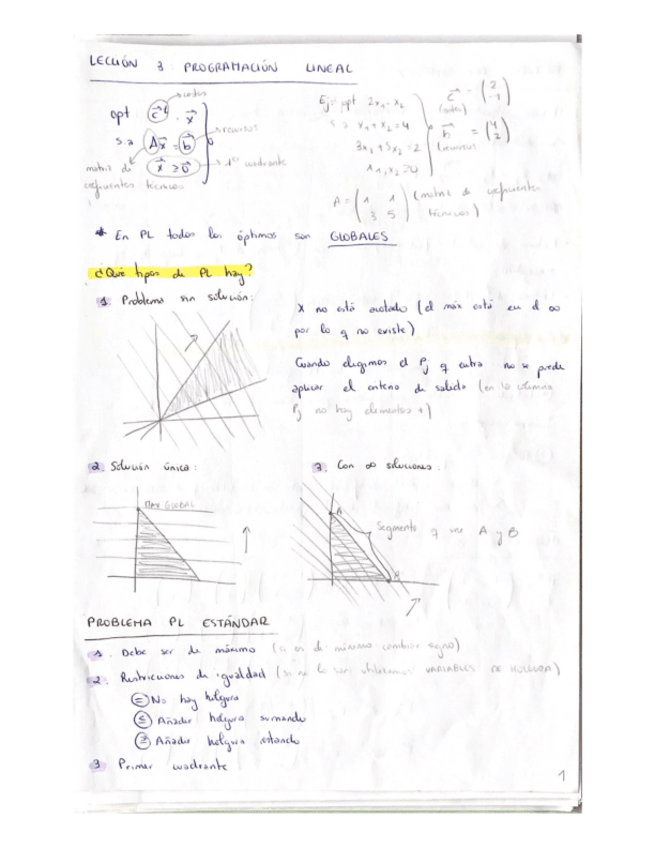 LECCIÓN 3: PROGRAMACIÓN LINEAL
costes
opt c^t · x
s.a Ax = b recursos
x ≥ 0 1er cuadrante
matriz de
coeficientes técnicos
Ej: opt 2x₁ - x₂
s.a x₁ + x₂ = 4
3x₁ + 5x₂ = 2
x₁, x₂ ≥ 0
c = (2 -1)
(costes)
b = (4 2)
(recursos)
A = (1 1 3 5) (matriz de coeficientes
técnicos)
* En PL todos los óptimos son GLOBALES
¿Qué tipos de PL hay?
1. Problema sin solución:
X no está acotado (el máx está en el ∞
por lo q no existe)
Cuando elegimos el Pj q entra no se puede
aplicar el criterio de salida (en la columna
Pj no hay elementos +)
2. Solución única:
MAX GLOBAL
3. Con ∞ soluciones:
A
Segmento q une A y B
B
PROBLEMA PL ESTÁNDAR
1. Debe ser de máximo (si es de mínimo cambiar signo)
2. Restricciones de igualdad (si no lo son utilizamos VARIABLES DE HOLGURA)
= No hay holgura
≤ Añadir holgura sumando
≥ Añadir holgura restando
3 Primer cuadrante
1